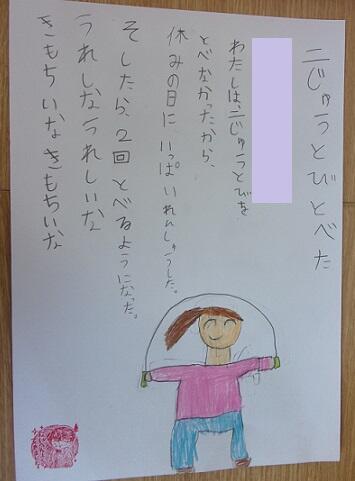 二じゅうとびとべた
わたしは、二じゅうとびを
とべなかったから、
休みの日にいっぱいれんしゅうした。
そしたら、2回とべるようになった。
うれしいなうれしいな
きもちいいなきもちいいな